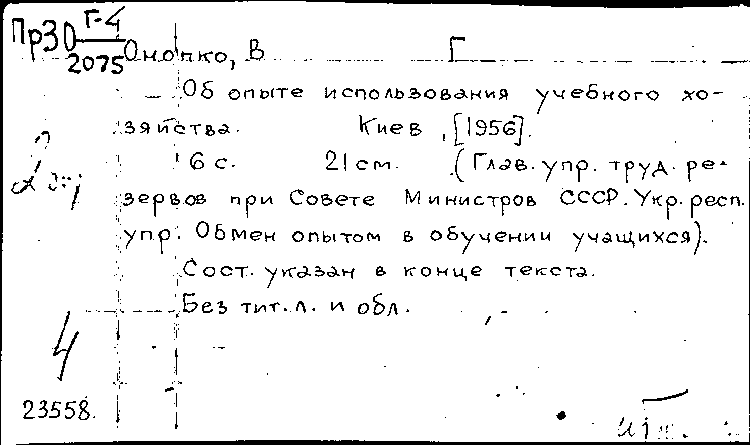 ПрЗО Г-4
2075
Онопко, В Г
Об опыте использования учебного хо-
зяйства. Киев, [1956].
6 с. 21 см. (Глав. упр. труд. ре-
зервов при Совете Министров СССР. Укр. респ.
упр. Обмен опытом в обучении учащихся).
Сост. указан в конце текста.
Без тит. л. и обл.
4
23558.